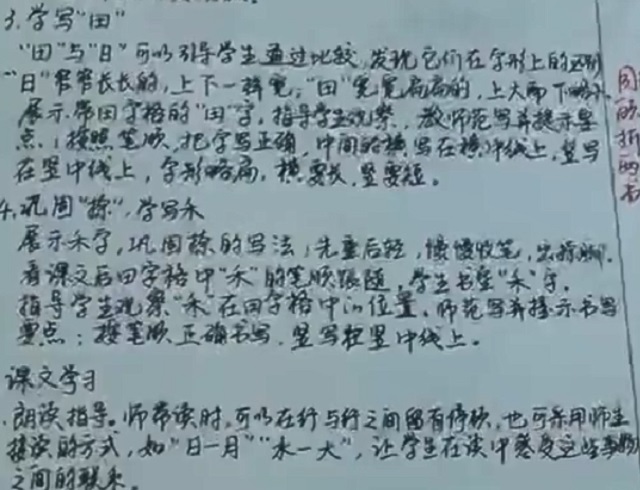 3.学写“田”
“田”与“日”可以引导学生通过比较,发现它们在字形上的区别
“日”窄窄长长的,上下一样宽;“田”宽宽扁扁的,上大而下略小
展示带田字格的“田”字,指导学生观察,教师范写并提示要
点:按照笔顺,把字写正确,中间的横写在横中线上,竖写
在竖中线上,字形略扁,横要长,竖要短。
4.巩固“捺”,学写禾
展示禾字,巩固捺的写法,先重后轻,慢慢收笔,出捺脚。
看课文后田字格中“禾”的笔顺跟随,学生书空“禾”字。
指导学生观察“禾”在田字格中的位置,师范写并提示书写
要点:按笔顺正确书写,竖写在竖中线上。
课文学习
.朗读指导。师带读时,可以在行与行之间留有停顿,也可采用师生
接读的方式,如“日一月”“水一火”,让学生在读中感受这些事物
之间的联系。
的
折